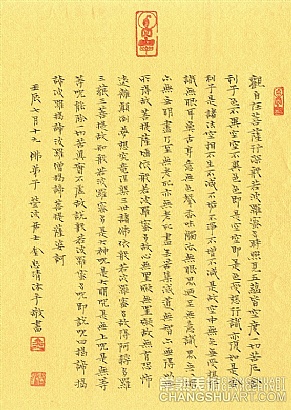 觀自在菩薩行深般若波羅蜜多時照見五蘊皆空度一切苦厄舍
利子色不異空空不異色色即是空空即是色受想行識亦復如是舍
利子是諸法空相不生不滅不垢不淨不增不減是故空中無色無受想行
識無眼耳鼻舌身意無色聲香味觸法無眼界乃至無意識界無無明
亦無無明盡乃至無老死亦無老死盡無苦集滅道無智亦無得以無
所得故菩提薩埵依般若波羅蜜多故心無罣礙無罣礙故無有恐怖
遠離顛倒夢想究竟涅槃三世諸佛依般若波羅蜜多故得阿耨多羅
三藐三菩提故知般若波羅蜜多是大神咒是大明咒是無上咒是無等
等咒能除一切苦真實不虛故說般若波羅蜜多咒即說咒曰揭諦揭
諦波羅揭諦波羅僧揭諦菩提薩婆訶
壬辰七月十九 佛弟子 居士 金忠清沐手敬書